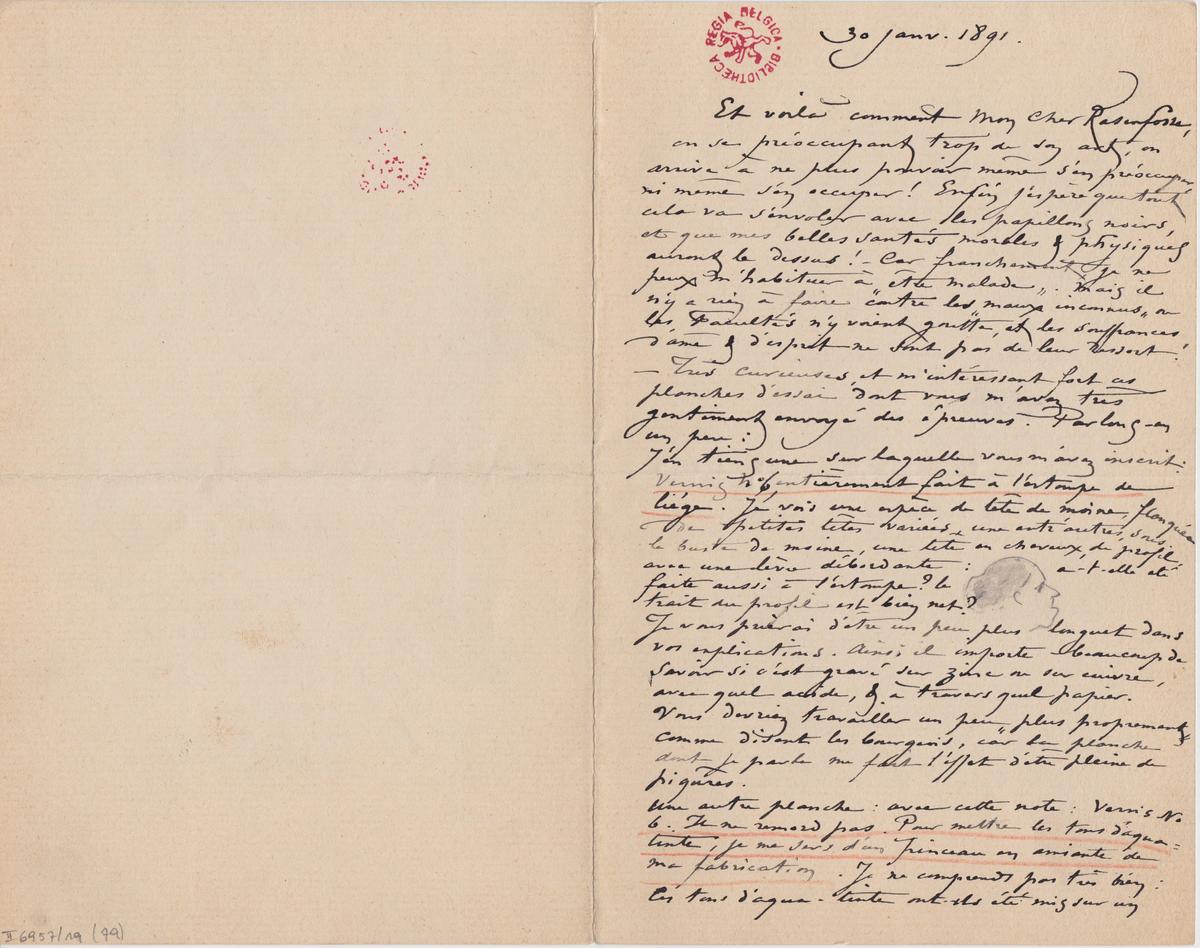 REGIA BELGICA • BIBLIOTHECA
30 janv. 1891.
Et voilà comment mon cher Rassenfosse,
en se préoccupant trop de son art, on
arrive à ne plus pouvoir même s'en préoccuper
ni même s'en occuper ! Enfin j'espère que tout
cela va s'envoler avec les papillons noirs,
et que mes belles santés morales & physiques
auront le dessus ! – Car franchement je ne
peux m'habituer à être malade „. Mais il
n'y a rien à faire "contre les maux inconnus„ ou
les Facultés n'y voient goutte, et les souffrances
d'âme & d'esprit ne sont pas de leur ressort !
— Très curieuses, et m'intéressant fort ces
planches d'essai dont vous m'avez très
gentiment envoyé des épreuves. Parlons-en
un peu :
J'en tiens une sur laquelle vous m'avez inscrit :
Vernis No 6 entièrement fait à l'estompe de
liége. Je vois une espèce de tête de moine, flanquée
de petites têtes variées, une entr'autres, sous
le buste de moine, une tête en cheveux de profil
avec une lèvre débordante : a-t-elle été
faite aussi à l'estompe ? le
trait du profil est bien net ?
Je vous prierai d'être un peu plus longuet dans
vos explications. Ainsi il importe beaucoup de
savoir si c'est gravé sur zinc ou sur cuivre,
avec quel acide, & à travers quel papier.
Vous devriez travailler un peu "plus proprement„
comme disent les bourgeois, car la planche
dont je parle me fait l'effet d'être pleine de
piqûres.
Une autre planche : avec cette note : Vernis No
6. Il ne remord pas. Pour mettre les tons d'aqua-
tinte, je me sers d'un pinceau en amiante de
ma fabrication. Je ne comprends pas très bien :
Les tons d'aqua-tinte ont-ils été mis sur un
II 6957/19 (44)